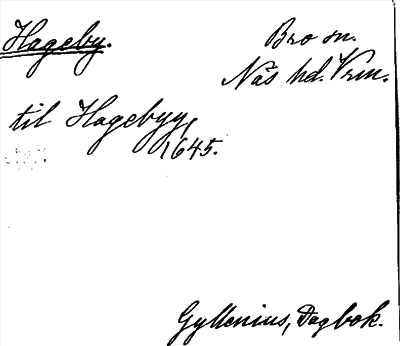 Hageby.
Bro sn.
Näs hd. Vrm.
til Hagebyy
1645.
Gyllenius, Dagbok.